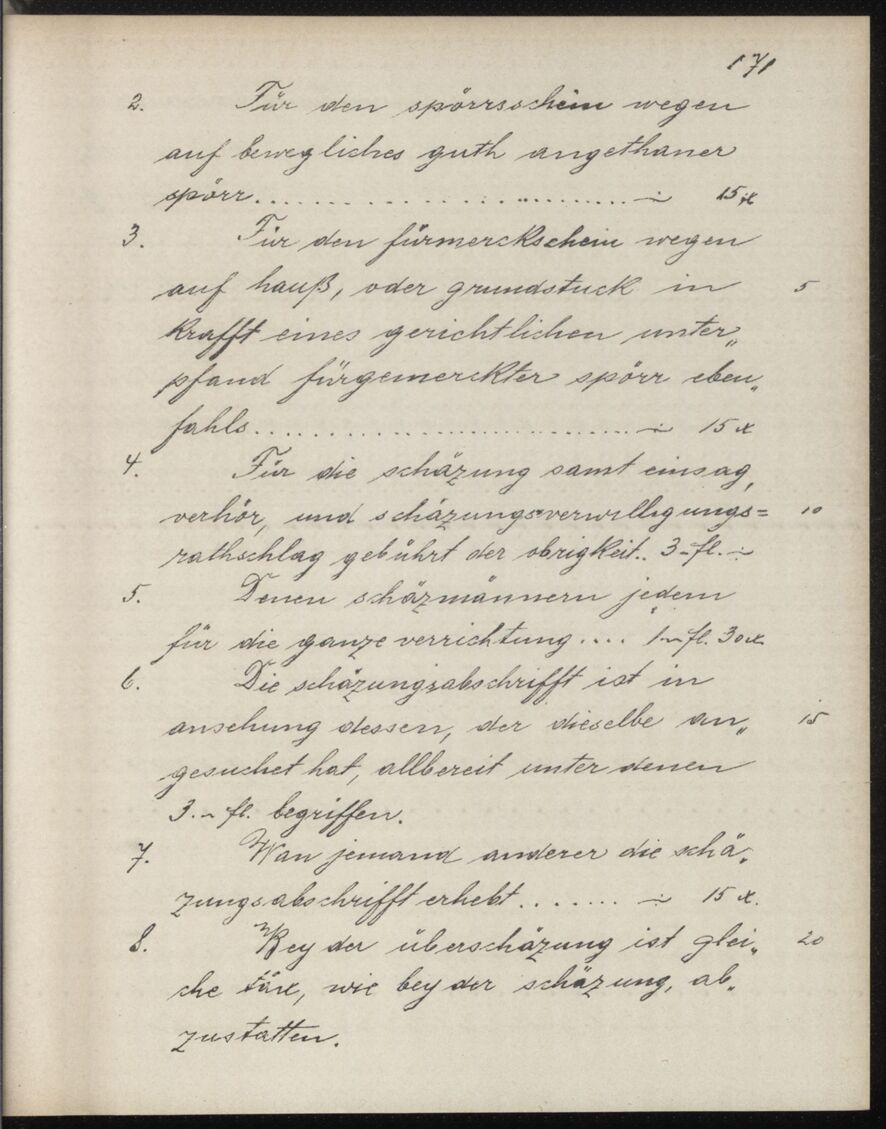 171
2. Für den spörrsschein wegen
auf bewegliches guth angethaner
spörr.............................÷ 15 x
3. Für den fürmerckschein wegen
auf hauß, oder grundstuck in 5
krafft eines gerichtlichen unter„
pfand fürgemerckter spörr eben„
fahls.............................÷ 15 x
4. Für die schäzung samt einsag,
verhör, und schäzungsverwilligungs= 10
rathschlag gebührt der obrigkeit.. 3 fl. ÷
5. Denen schäzmännern jedem
für die ganze verrichtung.... 1 fl. 30 x
6. Die schäzungsabschrifft ist in
ansehung dessen, der dieselbe an„ 15
gesuchet hat, allbereit unter denen
3. fl. begriffen.
7. Wan jemand anderer die schä„
zungsabschrifft erhebt........ ÷ 15 x.
8. Bey der überschäzung ist glei„ 20
che täx, wie bey der schäzung, ab„
zustatten.